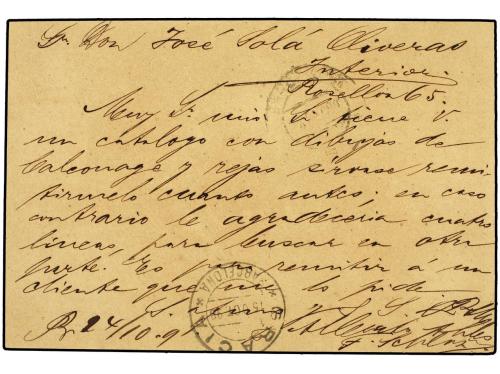 Sr. Don José Solá Oliveras
Interior.
Rosellon 65.
Muy Sr. mio: Si tiene V.
un catalogo con dibujos de
balconage y rejas sirvase remi-
tirmelo cuanto antes; en caso
contrario le agradeceria cuatro
lineas, para buscar en otra
parte. Es para remitir á un
cliente que me lo pide
S. S.
24/10-9
BARCELONA
GRACIA